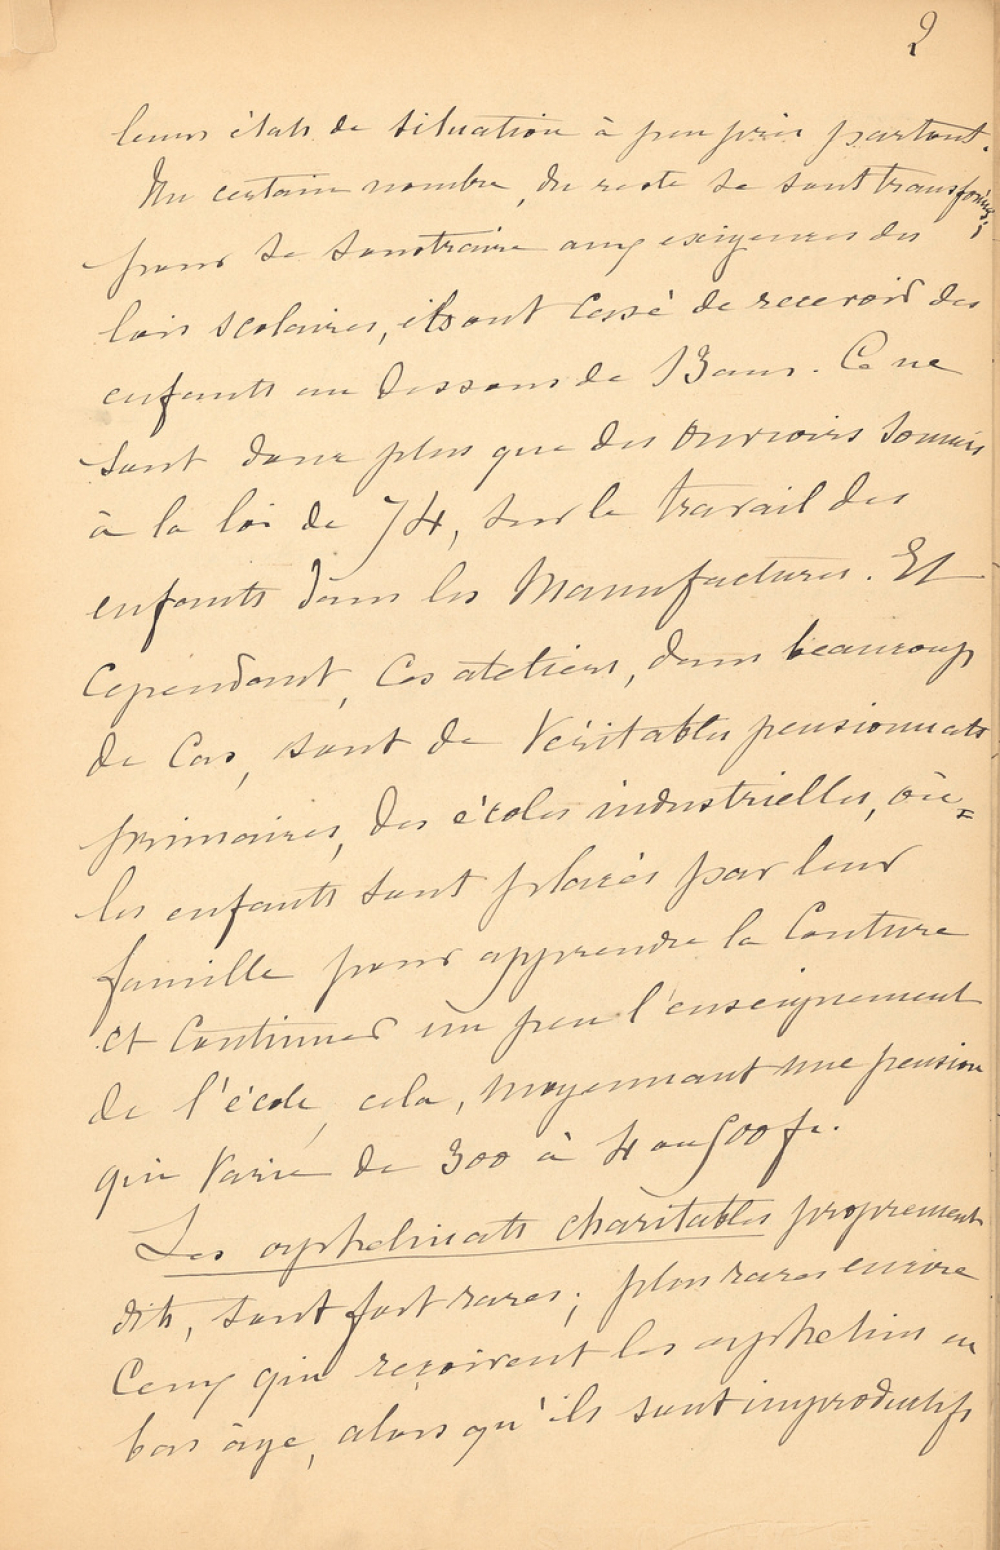 2
leurs états de situation à peu près partout.
Un certain nombre, du reste se sont transformés;
pour se soustraire aux exigences des
lois scolaires, ils ont cessé de recevoir des
enfants au dessous de 13 ans. Ce ne
sont donc plus que des ouvroirs soumis
à la loi de 74, sur le travail des
enfants dans les Manufactures. Et
Cependant, ces ateliers, dans beaucoup
de cas, sont de véritables pensionnats
primaires, des écoles industrielles, où=
les enfants sont placés par leur
famille pour apprendre la Couture
et Continuer un peu l'enseignement
de l'école, cela, moyennant une pension
qui varie de 300 à 4 ou 500 fr.
Les orphelinats charitables proprement
dits, sont fort rares; plus rares encore
Ceux qui reçoivent les orphelins en
bas âge, alors qu'ils sont improductifs